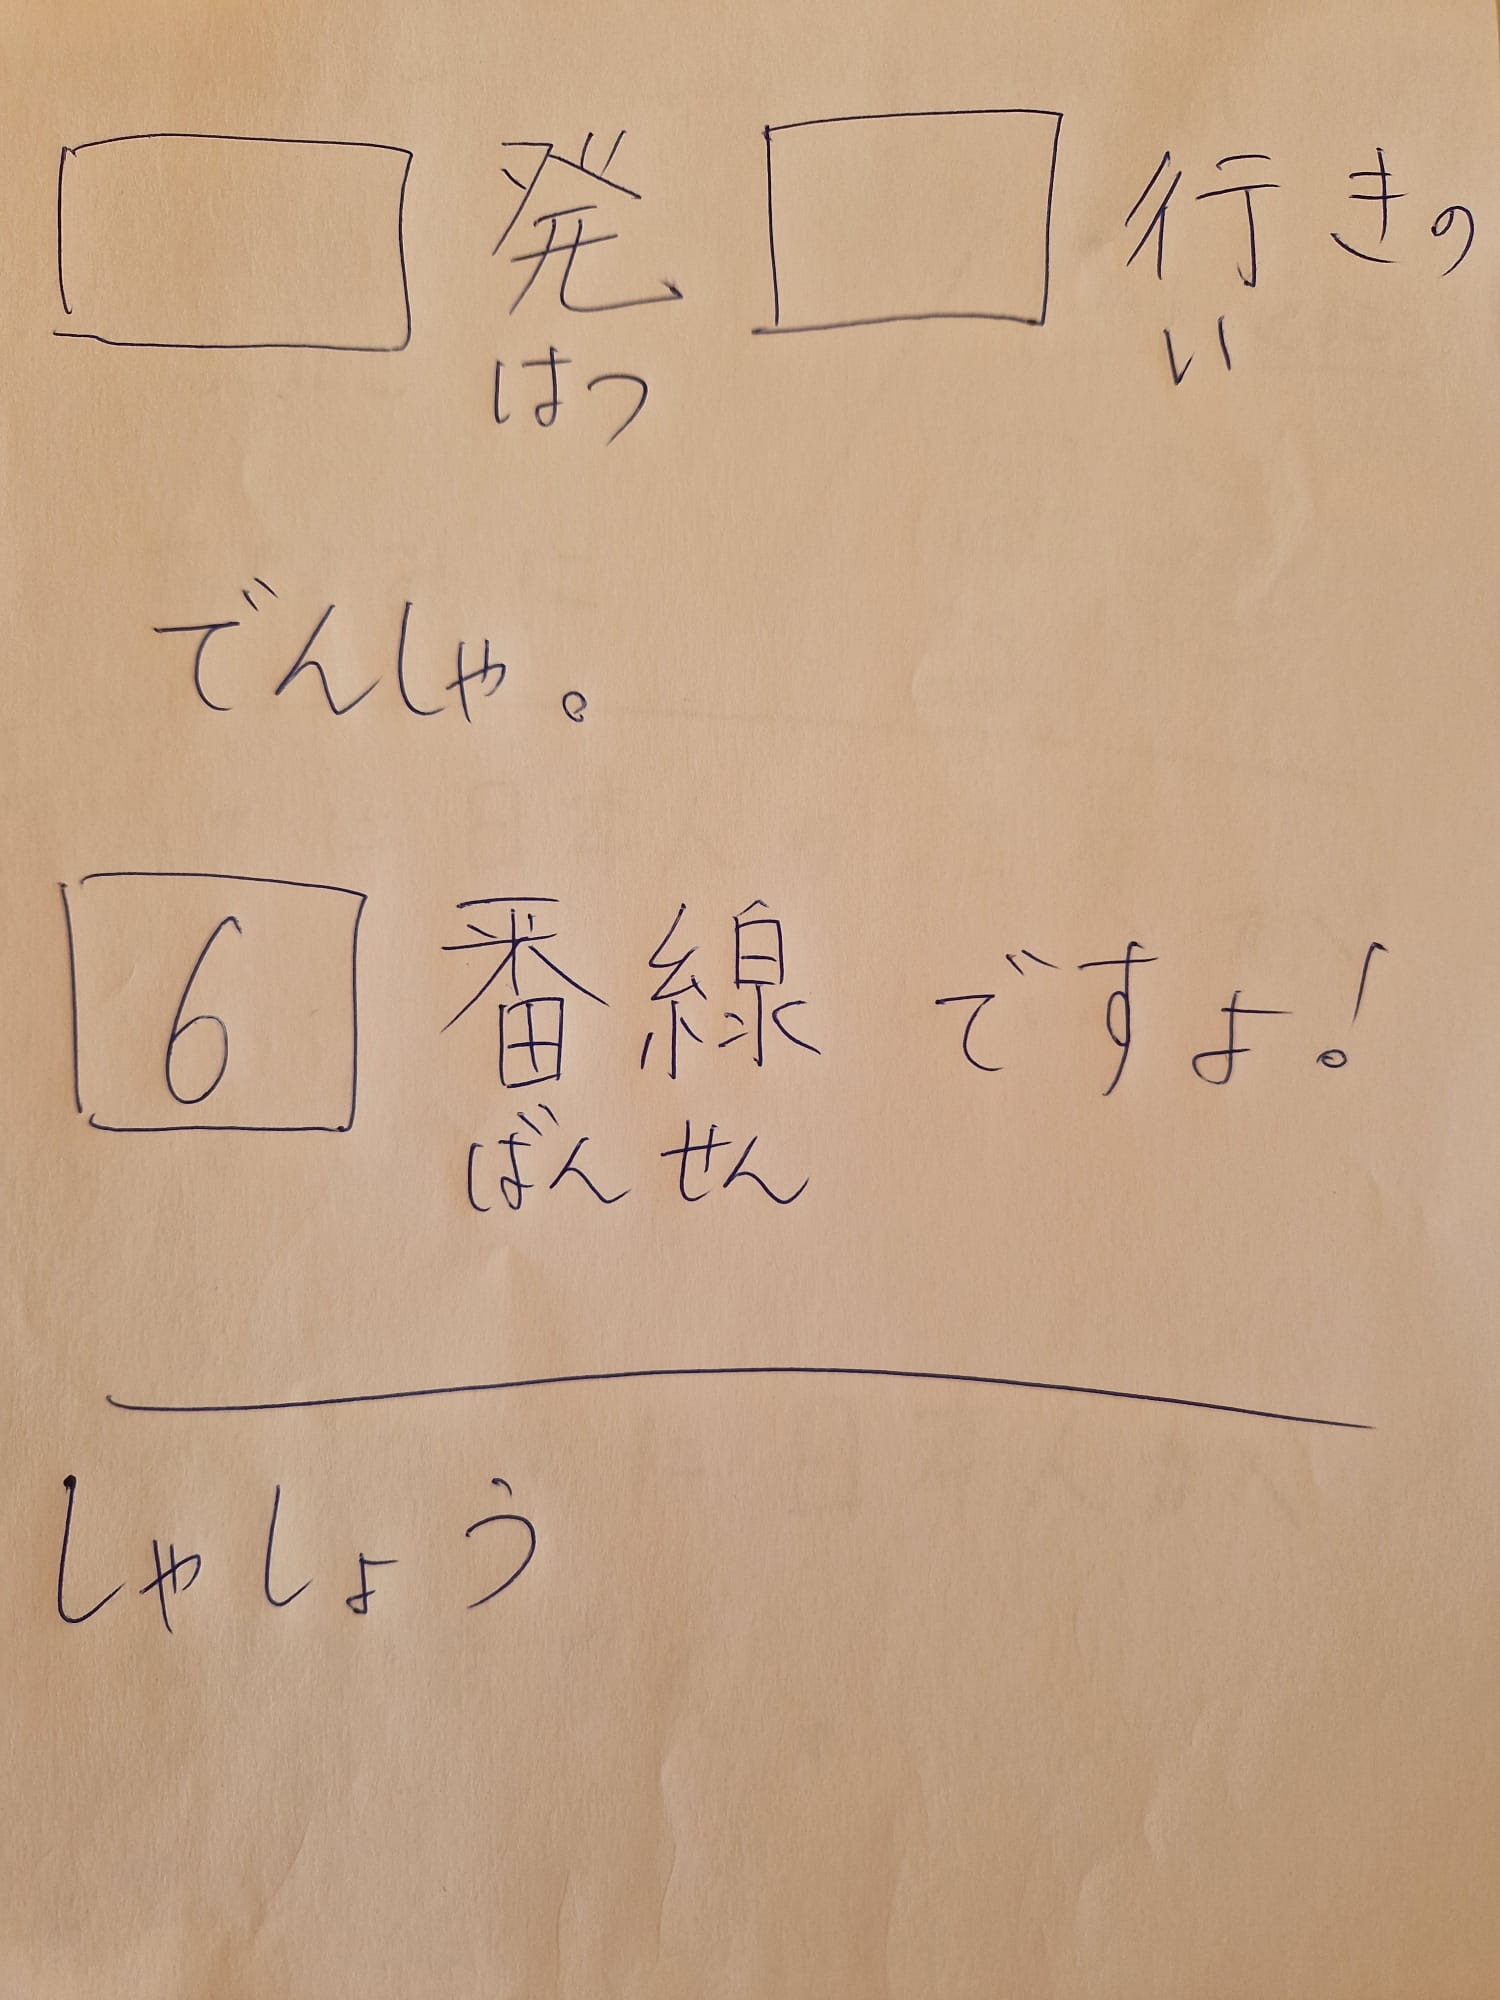 発 行きの
はつ い
でんしゃ。
6 番線 ですよ!
ばんせん
しゃしょう